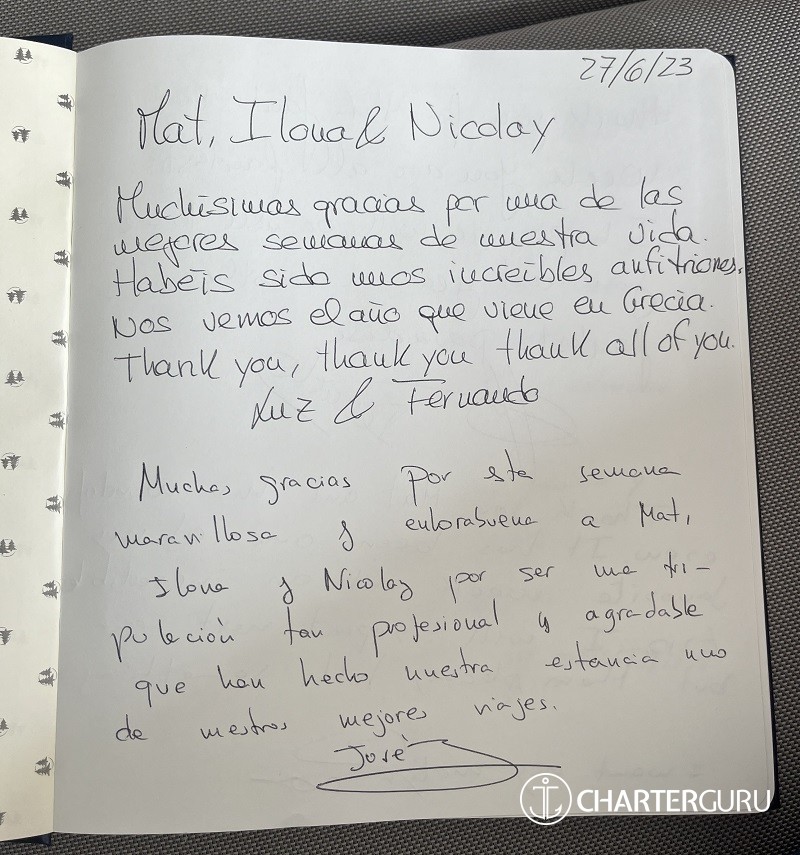 27/6/23
Mat, Ilona & Nicolay
Muchísimas gracias por una de las
mejores semanas de nuestra vida.
Habéis sido unos increíbles anfitriones.
Nos vemos el año que viene en Grecia.
Thank you, thank you thank all of you.
Luz & Fernando
Muchas gracias por este semana
maravillosa y enhorabuena a Mat,
Ilona y Nicolay por ser una tri-
pulación tan profesional y agradable
que han hecho nuestra estancia uno
de nuestros mejores viajes.
José
CHARTERGURU